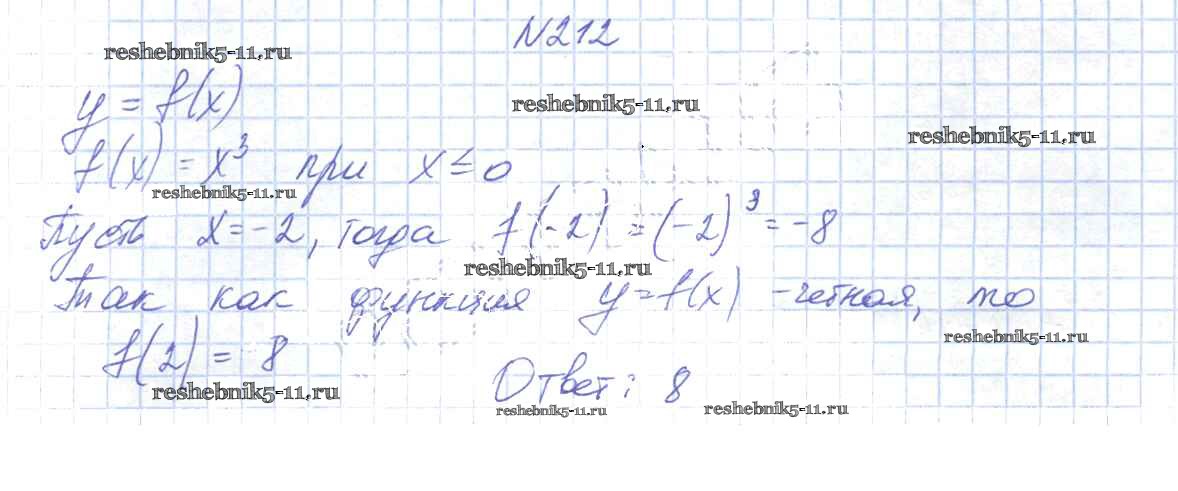 N212
reshebnik5-11.ru
y = f(x)
reshebnik5-11.ru
reshebnik5-11.ru
f(x) = x³ при x ≤ 0
reshebnik5-11.ru
Пусть x = -2, тогда f(-2) = (-2)³ = -8
reshebnik5-11.ru
Так как функция y = f(x) - четная, то
reshebnik5-11.ru
f(2) = 8
reshebnik5-11.ru
Ответ: 8
reshebnik5-11.ru
reshebnik5-11.ru